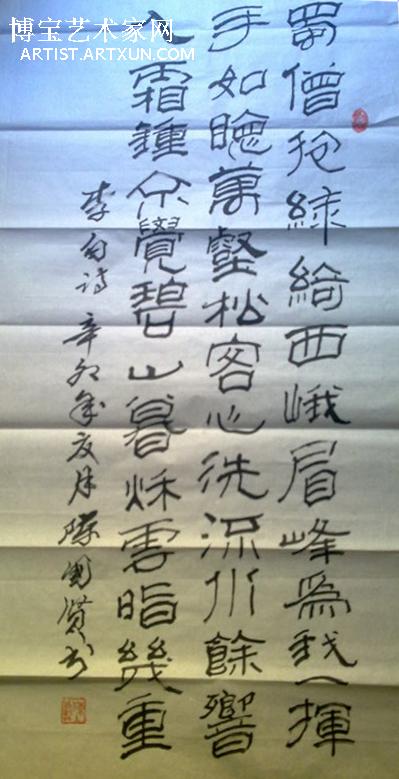 博宝艺术家网
ARTIST.ARTXUN.COM
蜀僧抱綠綺西峨眉峰為我一揮
手如聽萬壑松客心洗流水餘響
入霜鍾不覺碧山暮秋雲暗幾重
李白诗 辛卯年夏月陳國贤书